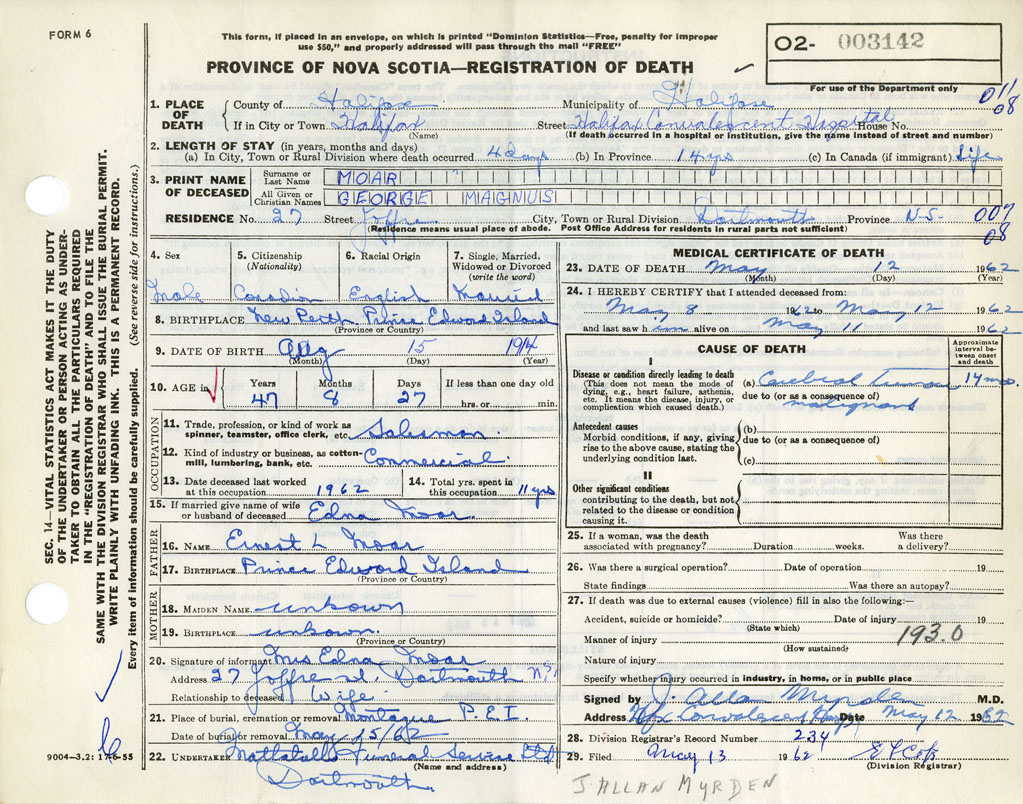 FORM 6
This form, if placed in an envelope, on which is printed "Dominion Statistics—Free, penalty for improper
use $50," and properly addressed will pass through the mail "FREE"
PROVINCE OF NOVA SCOTIA—REGISTRATION OF DEATH
02- 003142
For use of the Department only
011
08
1. PLACE OF DEATH
County of Halifax Municipality of Halifax
If in City or Town Halifax Street Halifax Convalescent Hospital House No.
(Name) (If death occurred in a hospital or institution, give the name instead of street and number)
2. LENGTH OF STAY (in years, months and days)
(a) In City, Town or Rural Division where death occurred 4 days (b) In Province 14 yrs (c) In Canada (if immigrant) Life
3. PRINT NAME OF DECEASED
Surname or Last Name MOAR
All Given or Christian Names GEORGE MAGNUS
RESIDENCE No. 27 Street Joffre City, Town or Rural Division Dartmouth Province N-S- 007
08
(Residence means usual place of abode. Post Office Address for residents in rural parts not sufficient)
4. Sex
Male
5. Citizenship
(Nationality)
Canadian
6. Racial Origin
English
7. Single, Married,
Widowed or Divorced
(write the word)
Married
8. BIRTHPLACE New Perth Prince Edward Island
(Province or Country)
9. DATE OF BIRTH Aug 15 1914
(Month) (Day) (Year)
10. AGE in
Years Months Days If less than one day old
47 8 27 hrs. or min.
OCCUPATION
11. Trade, profession, or kind of work as
spinner, teamster, office clerk, etc. Salesman
12. Kind of industry or business, as cotton-
mill, lumbering, bank, etc. Commercial
13. Date deceased last worked
at this occupation 1962
14. Total yrs. spent in
this occupation 11 yrs
15. If married give name of wife
or husband of deceased Edna Moar
FATHER
16. NAME Ernest L Moar
17. BIRTHPLACE Prince Edward Island
(Province or Country)
MOTHER
18. MAIDEN NAME unkown
19. BIRTHPLACE unkown
(Province or Country)
20. Signature of informant Mrs Edna Moar
Address 27 Joffre st. Dartmouth N.S.
Relationship to deceased Wife
21. Place of burial, cremation or removal Montague P.E.I.
Date of burial or removal May 15/62
22. UNDERTAKER Mattatalls Funeral Service Ltd
(Name and address)
Dartmouth.
MEDICAL CERTIFICATE OF DEATH
23. DATE OF DEATH May 12 1962
(Month) (Day) (Year)
24. I HEREBY CERTIFY that I attended deceased from:
May 8 1962 to May 12 1962
and last saw him alive on May 11 1962
CAUSE OF DEATH
Approximate
interval be-
tween onset
and death
I
Disease or condition directly leading to death
(This does not mean the mode of
dying, e.g., heart failure, asthenia,
etc. It means the disease, injury, or
complication which caused death.)
(a) Cerebral tumour 14 mos.
due to (or as a consequence of)
malignant
Antecedent causes
Morbid conditions, if any, giving
rise to the above cause, stating the
underlying condition last.
(b)
due to (or as a consequence of)
(c)
II
Other significant conditions
contributing to the death, but not
related to the disease or condition
causing it.
25. If a woman, was the death
associated with pregnancy? Duration weeks. Was there
a delivery?
26. Was there a surgical operation? Date of operation 19
State findings Was there an autopsy?
27. If death was due to external causes (violence) fill in also the following:—
Accident, suicide or homicide? Date of injury 19
(State which)
Manner of injury 193.0
(How sustained)
Nature of injury
Specify whether injury occurred in industry, in home, or in public place
Signed by J. Allan Myrden M.D.
Address Hfx Convalescent Hosp Date May 12 1962
28. Division Registrar's Record Number 234
29. Filed May 13 1962
(Division Registrar)
J. ALLAN MYRDEN
SEC. 14—VITAL STATISTICS ACT MAKES IT THE DUTY
OF THE UNDERTAKER OR PERSON ACTING AS UNDER-
TAKER TO OBTAIN ALL THE PARTICULARS REQUIRED
IN THE "REGISTRATION OF DEATH" AND TO FILE THE
SAME WITH THE DIVISION REGISTRAR WHO SHALL ISSUE THE BURIAL PERMIT.
WRITE PLAINLY WITH UNFADING INK. THIS IS A PERMANENT RECORD.
Every item of information should be carefully supplied. (See reverse side for instructions.)
9004-3.2: 17-6-55